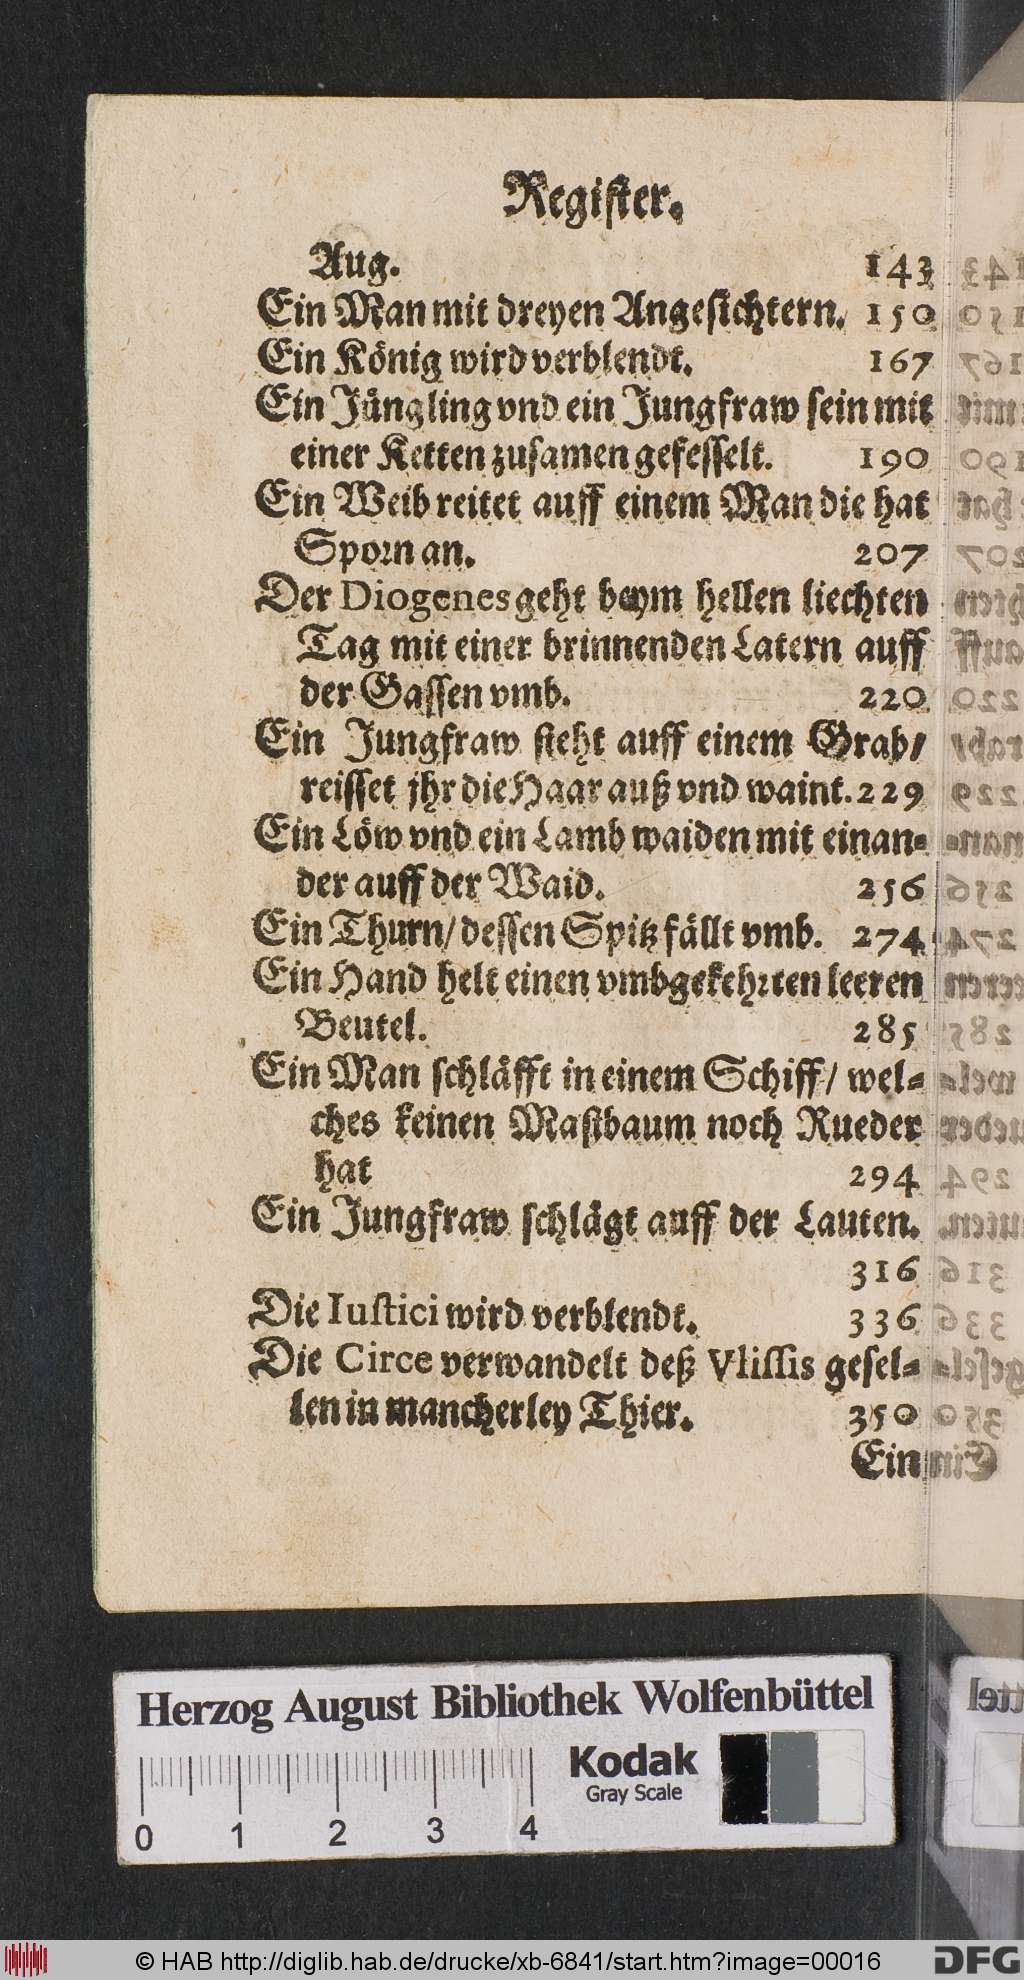 Register.
Aug. 143
Ein Man mit dreyen Angesichtern. 150
Ein König wird verblendt. 167
Ein Jüngling vnd ein Jungfraw sein mit
einer Ketten zusamen gefesselt. 190
Ein Weib reitet auff einem Man die hat
Sporn an. 207
Der Diogenes geht beym hellen liechten
Tag mit einer brinnenden Latern auff
der Gassen vmb. 220
Ein Jungfraw sieht auff einem Grab/
reisset jhr die Haar auß vnd waint. 229
Ein Löw vnd ein Lamb waiden mit einan-
der auff der Waid. 256
Ein Thurn/ dessen Spitz fällt vmb. 274
Ein Hand helt einen vmbgekehrten leeren
Beutel. 285
Ein Man schläfft in einem Schiff/ wel-
ches keinen Mastbaum noch Rueder
hat 294
Ein Jungfraw schlägt auff der Lauten.
316
Die Iustici wird verblendt. 336
Die Circe verwandelt deß Vlissis gesel-
len in mancherley Thier. 350
Ein
Herzog August Bibliothek Wolfenbüttel
Kodak
Gray Scale
0 1 2 3 4
© HAB http://diglib.hab.de/drucke/xb-6841/start.htm?image=00016
DFG